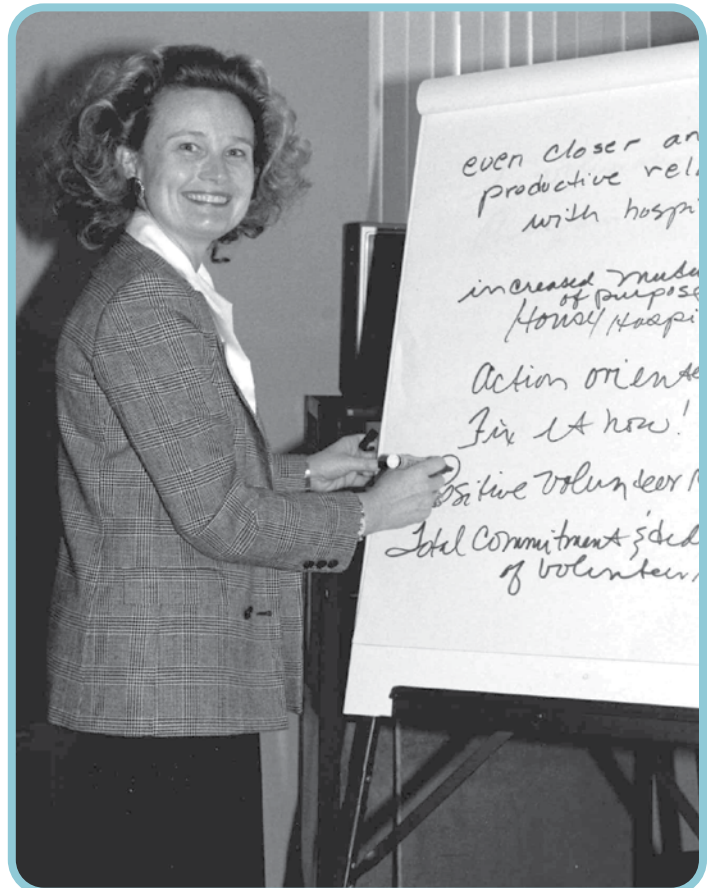 even closer an
productive rel
with hospi
increased mutu
of purpose
House/Hospi
Action oriente
Fix it now!
Positive volunteer
Total Commitment & ded
of volunteer